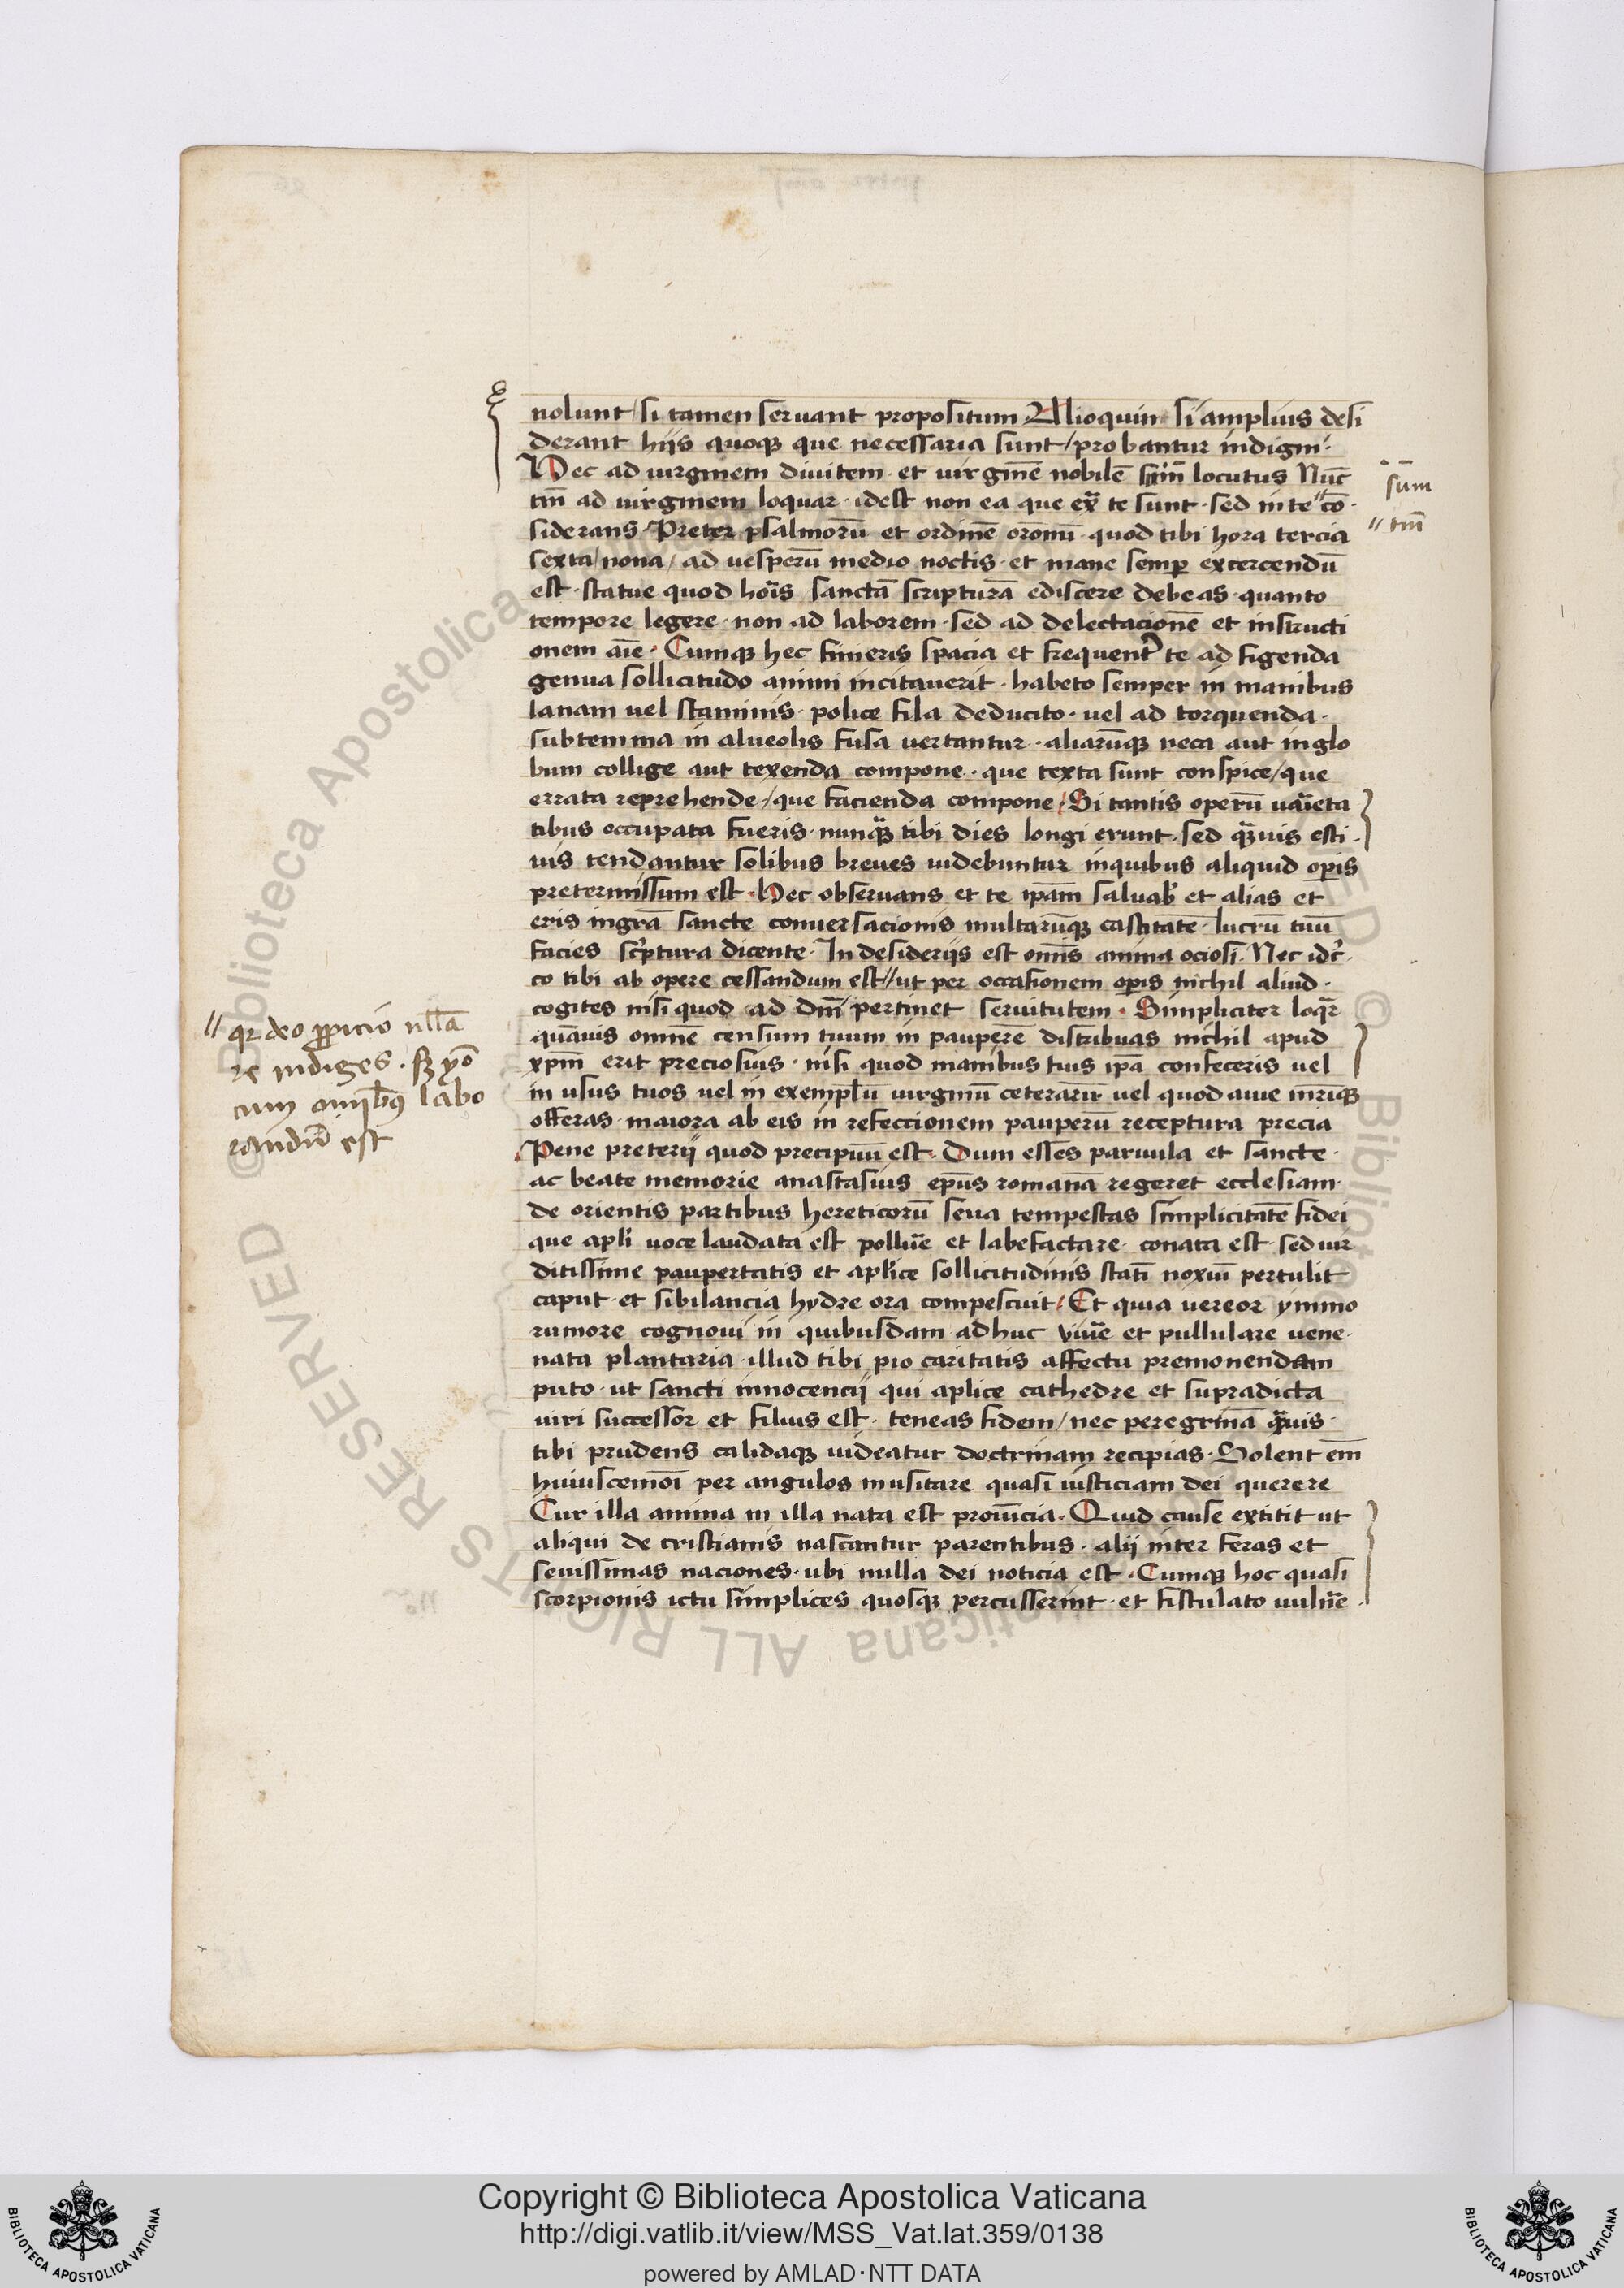 nolunt / si tamen seruant propositum Alioquin si amplius desi
derant hijs quoqꝫ que necessaria sunt / probantur indigni·
Hec ad uirginem diuitem · et uirginē nobilē sim̄ locutus Nūc
tm̄ ad uirginem loquar · idest non ea que ex̄ te sunt · sed in te " cō·
siderans · Preter psalmorū et ordinē oronū · quod tibi hora tercia
sexta / nona / ad uesperū medio noctis · et mane semꝑ excercendū
est · statue quod hoīs sanctā scripturā ediscere debeas · quanto
tempore legere · non ad laborem · sed ad delectacionē et instructi
onem aīe · Cumqꝫ hec finieris spacia et frequent̄ te ad figenda
genua sollicitudo animi incitauerit · habeto semper in manibus
lanam uel staminis · police fila deducito · uel ad torquenda ·
subtemina in alueolis fusa uertantur · aliarūqꝫ neca aut in glo
bum collige aut texenda compone · que texta sunt conspice / que
errata reprehende / que facienda compone / Si tantis operū uāieta
tibus occupata fueris · nunqᷓ tibi dies longi erunt · sed qᷓuis esti·
uis tendantur solibus breues uidebuntur inquibus aliquid oꝑis
pretermissum est · Hec obseruans et te ip̄am saluab' et alias et
eris ingrā sancte conuersacionis multarūqꝫ castitatē · lucrū tuū
facies sc̄ptura dicente · In desiderijs est om̄is anima ociosi · Nec idc̄·
co tibi ab opere cessandum est " ut per occasionem oꝑis nichil aliud ·
cogites nisi quod ad dm̄ / pertinet seruitutem · Simpliciter loqr̄
quāuis omnē censum tuum in pauperē distribuas nichil apud
xpm̄ erit preciosius · nisi quod manibus tuis ip̄a confeceris uel
in usus tuos uel in exemplū uirginū ceterarū uel quod auie mr̄iqꝫ
offeras · maiora ab eis in refeccionem pauperū receptura precia
Pene preterij quod precipuū est · Dum esses paruula et sancte ·
ac beate memorie anastasius ep̄us romanā regeret ecclesiam·
de orientis partibus hereticorū seua tempestas simplicitatē fidei
que apl̄i uoce laudata est polluē et labefactare · conata est · sed uir
ditissime paupertatis et apl̄ice sollicitudinis statī noxiū pertulit
caput · et sibilancia hydre ora compescuit / Et quia uereor ymmo
rumore cognoui in quibusdam adhuc viuē et pullulare uene·
nata plantaria · illud tibi pio caritatis affectu premonendam
puto · ut sancti innocencij qui aplice cathedre et supradicta
uiri successor et filius est · teneas fidem / nec peregrinā qᷓuis ·
tibi prudens calidaqꝫ uideatur doctrinam recipias · Solent em̄
huiuscemoī per angulos musitare quasi iusticiam dei querere
Cur illa anima in illa nata est prouīcia · Quid cause extitit ut
aliqui de cristianis nascantur parentibus · alij inter feras et
seuissimas naciones · ubi nulla dei noticia est · Cumqꝫ hoc quasi
scorpionis ictu simplices quosqꝫ percusserint · et fistulato uulnē ·
sum̄
" tm̄
" qr deo ꝓpicio nll̄a
re indiges · sꝫ
cum omībꝰ labo
randū est
Copyright © Biblioteca Apostolica Vaticana
http://digi.vatlib.it/view/MSS_Vat.lat.359/0138
powered by AMLAD·NTT DATA
BIBLIOTECA APOSTOLICA VATICANA
BIBLIOTECA APOSTOLICA VATICANA